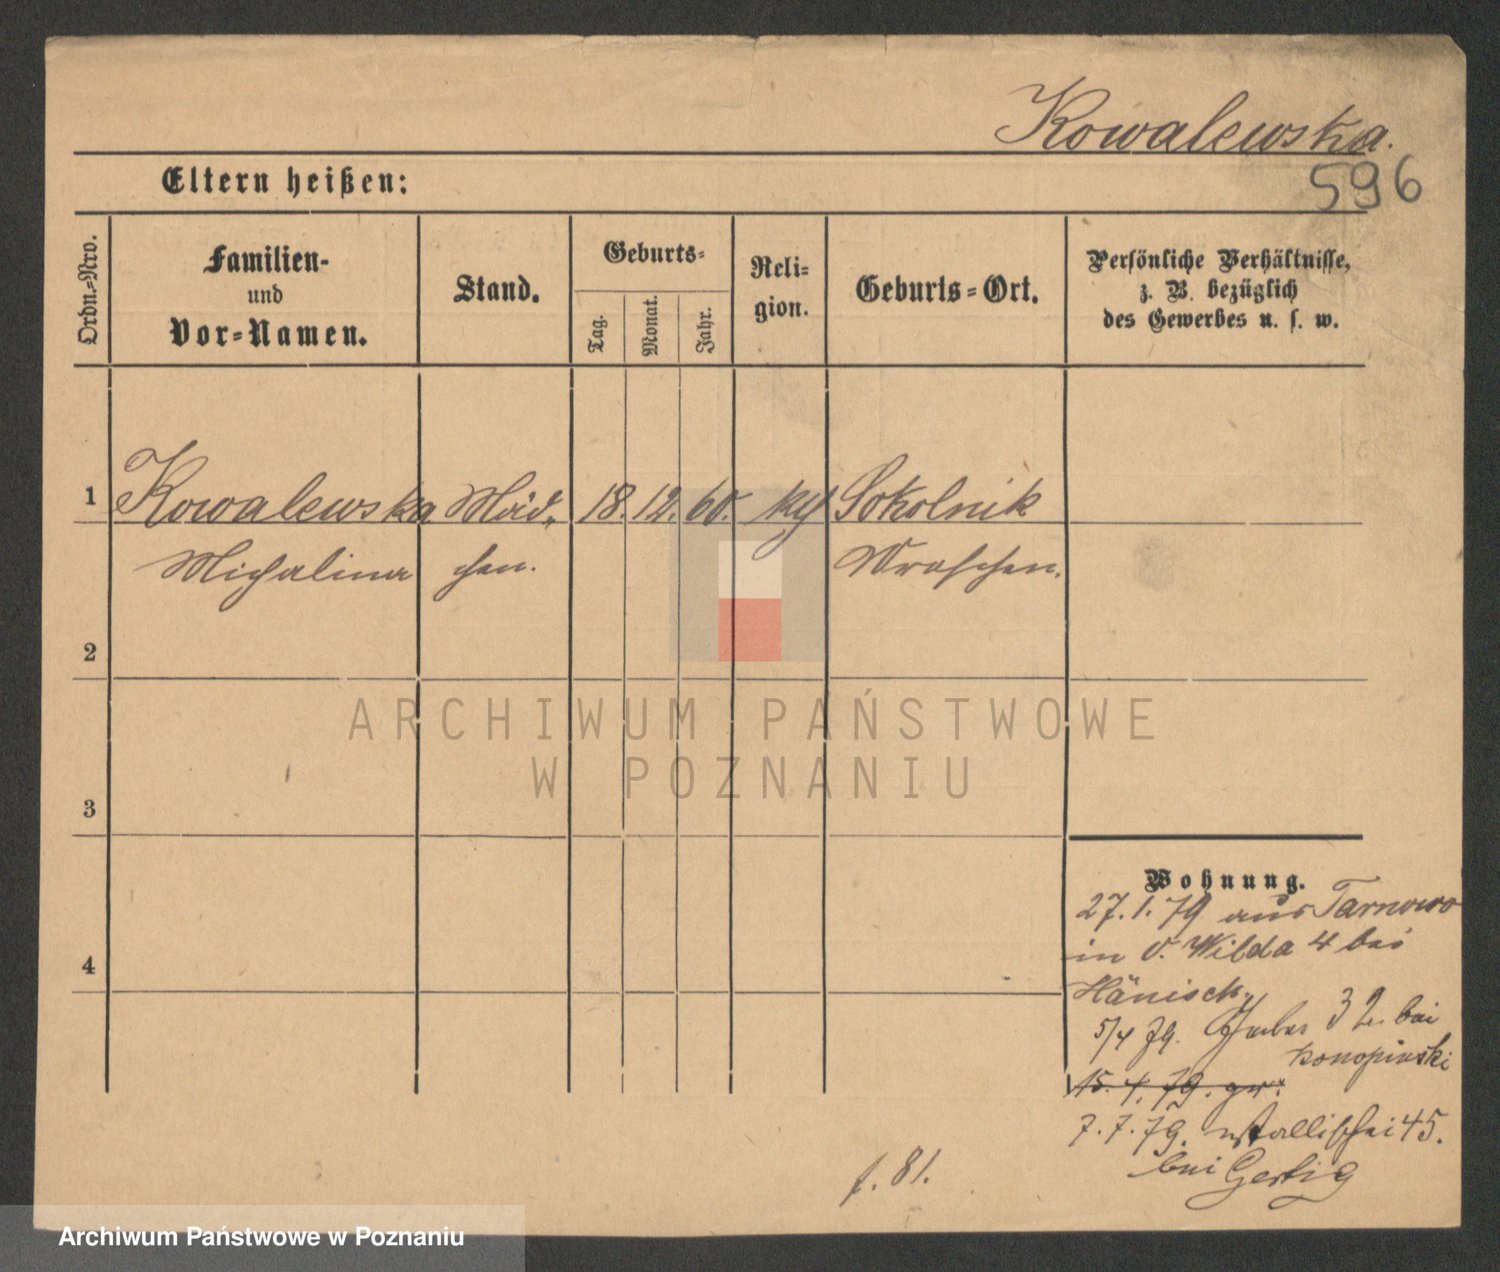 Kowalewska.
596
Eltern heißen:
Ordn.-Nro.
Familien-
und
Vor-Namen.
Stand.
Geburts-
Tag.
Monat.
Jahr.
Reli-
gion.
Geburts-Ort.
Persönliche Verhältnisse,
z. B. bezüglich
des Gewerbes u. s. w.
1 Kowalewska Mäd- 18. 12. 60. Sokolnik
Michalina chen. Wreschen.
2
3
4
Wohnung.
27.1.79 aus Tarnowo
in O. Wilda 4 bei
Hänisch.
5/4 79. 32. bei
Konopinski
15. 4. 79.
7. 7. 79. Wallischei 45.
bei Gertig
f. 81.
ARCHIWUM PAŃSTWOWE
W POZNANIU
Archiwum Państwowe w Poznaniu